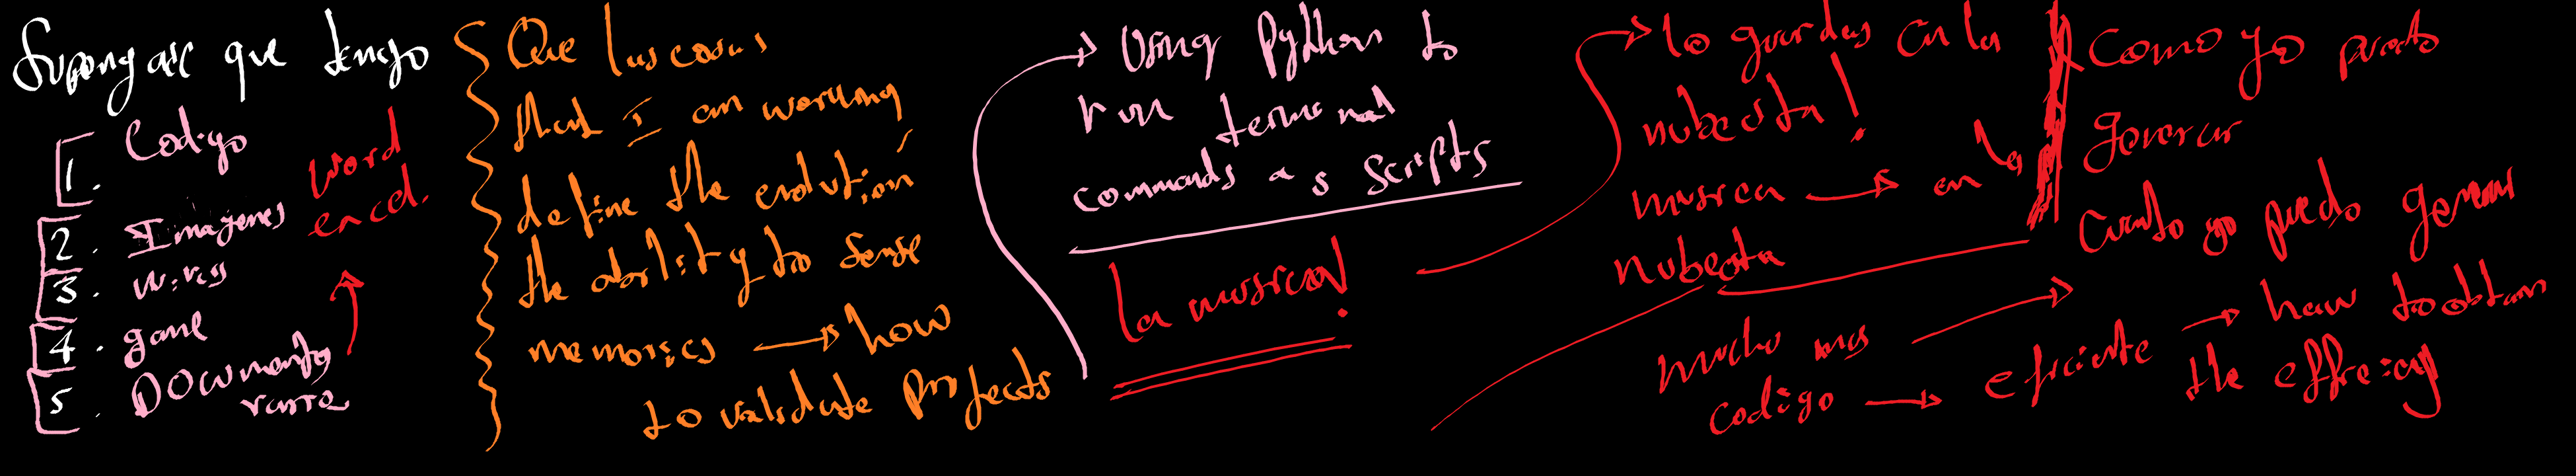 Supongase que tengo
1. Codigo
2. Imagenes
3.
4. game
5. Documents
word
excel.
Que las cosas
that I am working
define the evolution
the ability to sense
memories → how
to validate projects
Using Python to
run terminal
commands as scripts
La musica!
lo guardas en la
nubecita!
musica → en la
nubecita
Como yo puedo
generar
Cuando yo puedo generar
mucho mas
codigo → eficiente → how to obtain
the efficiency